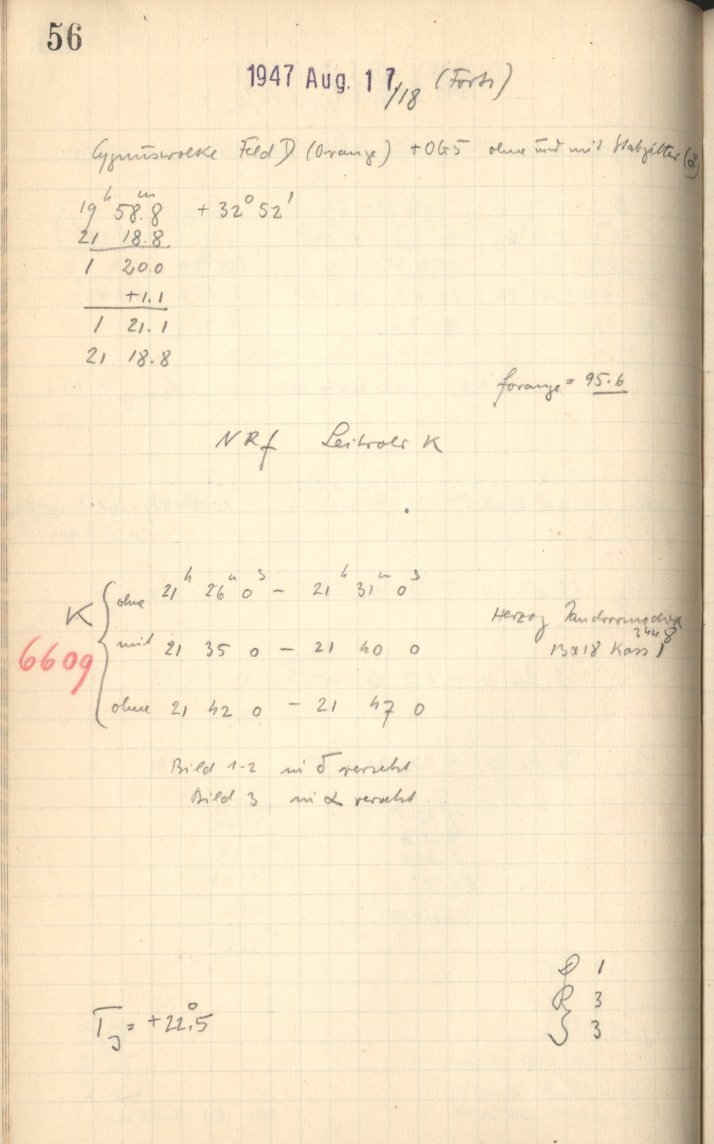 56
1947 Aug. 17/18 (Forts)
Cygnuswolke Feld D (Orange) + OG5 ohne und mit Stabgitter
19h 58m.8 + 32° 52'
21 18.8
1 20.0
+1.1
1 21.1
21 18.8
forange = 95.6
NRf Leitrohr K
ohne 21h 26m 0s - 21h 31m 0s
K
mit 21 35 0 - 21 40 0
6609
ohne 21 42 0 - 21 47 0
Herzog
13x18 Kass 1
Bild 1-2 in δ versetzt
Bild 3 in α versetzt
D 1
R 3
S 3
TJ = +22°.5